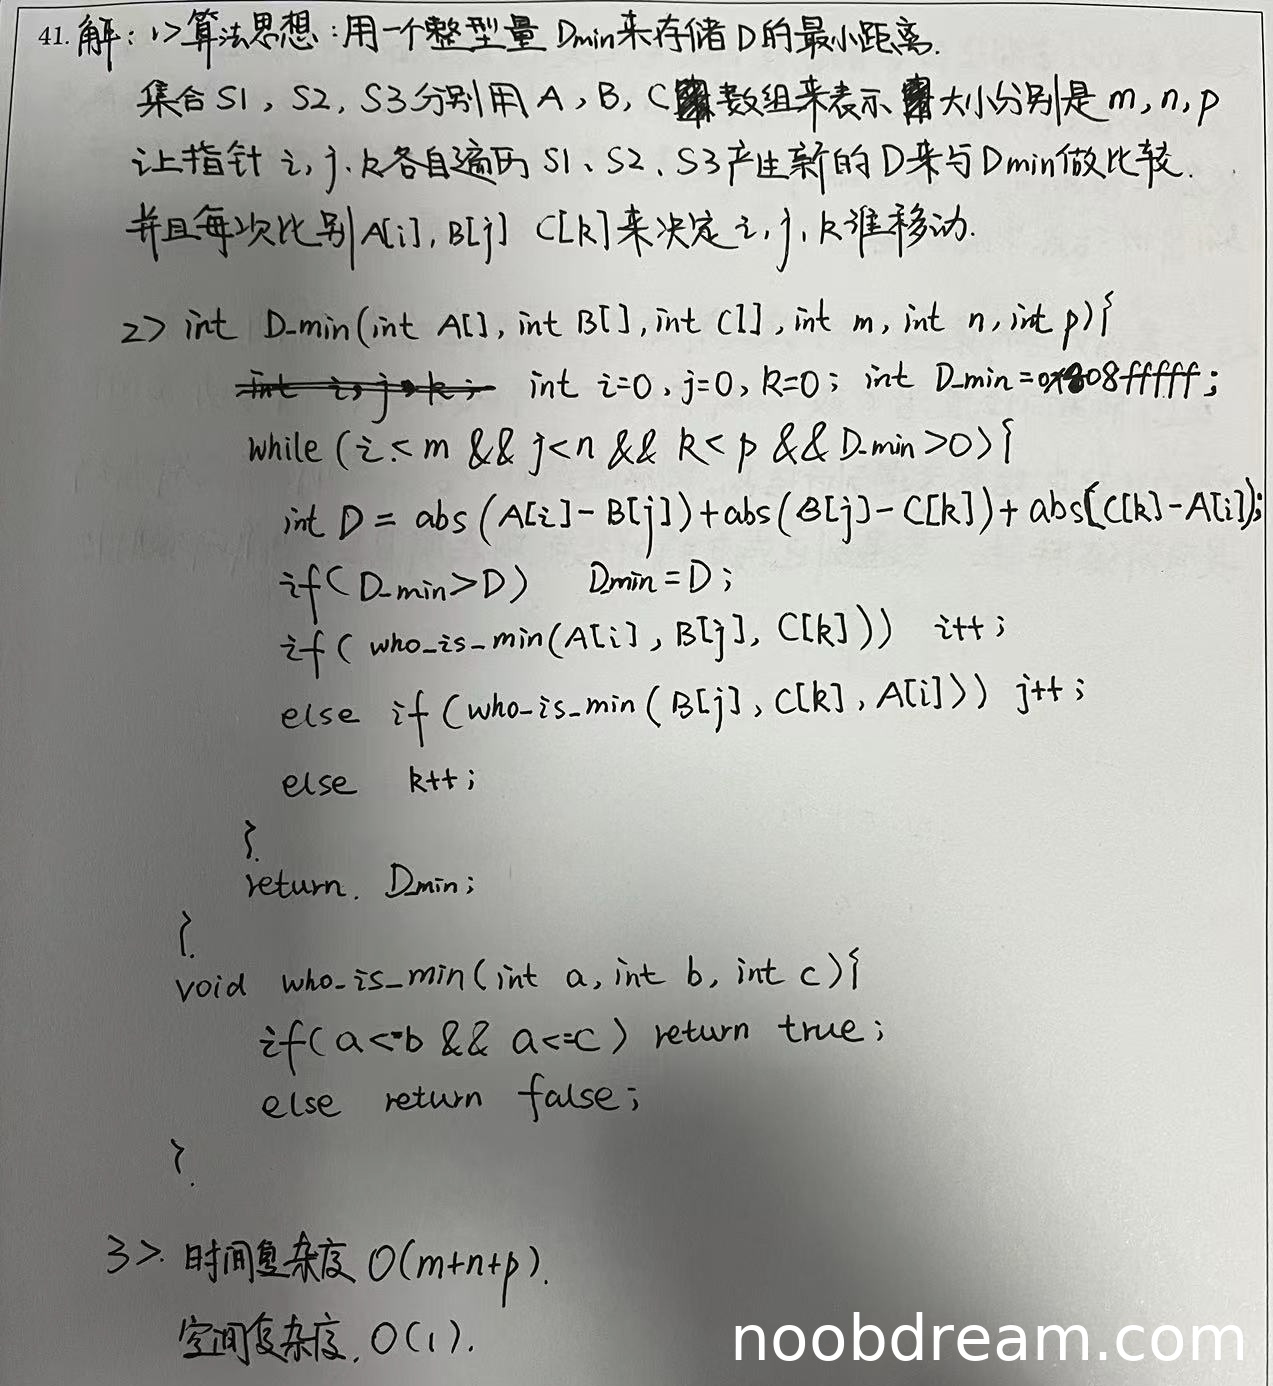 41. 解: 1> 算法思想: 用一个整型量 Dmin来存储D的最小距离.
集合S1, S2, S3分别用A, B, C 数组来表示 大小分别是m, n, p
让指针 i, j, k各自遍历 S1、S2、S3产生新的D来与Dmin做比较.
并且每次比别A[i], B[j] C[k]来决定 i, j, k谁移动.
2> int D_min(int A[], int B[], int C[], int m, int n, int p){
int i, j, k; int i=0, j=0, k=0; int D_min=0x08fffff;
while (i< m && j<n && k< p && D_min>0){
int D = abs(A[i]-B[j])+abs(B[j]-C[k])+abs(C[k]-A[i]);
if(D_min>D) Dmin=D;
if( who_is_min(A[i], B[j], C[k])) i++;
else if(who_is_min(B[j], C[k], A[i])) j++;
else k++;
}
return. D_min;
}
void who_is_min(int a, int b, int c){
if(a<=b && a<=c) return true;
else return false;
}
3> 时间复杂度 O(m+n+p).
空间复杂度. O(1).
noobdream.com